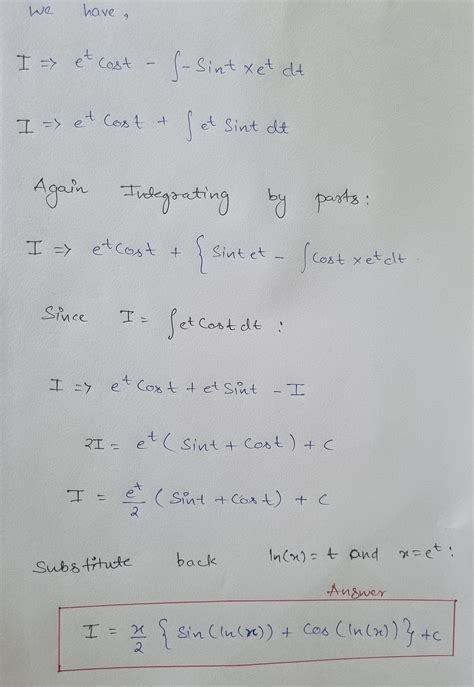 We have,
I => e^t Cost - ∫-Sint × e^t dt
I => e^t Cost + ∫ e^t Sint dt
Again Integrating by parts:
I => e^t Cost + { Sint e^t - ∫Cost × e^t dt
Since I = ∫e^t Cost dt :
I => e^t Cost + e^t Sint - I
2I = e^t ( Sint + Cost ) + C
I = e^t/2 ( Sint + Cost ) + C
Substitute back ln(x) = t and x = e^t :
Answer
I = x/2 { Sin(ln(x)) + Cos(ln(x)) } + C